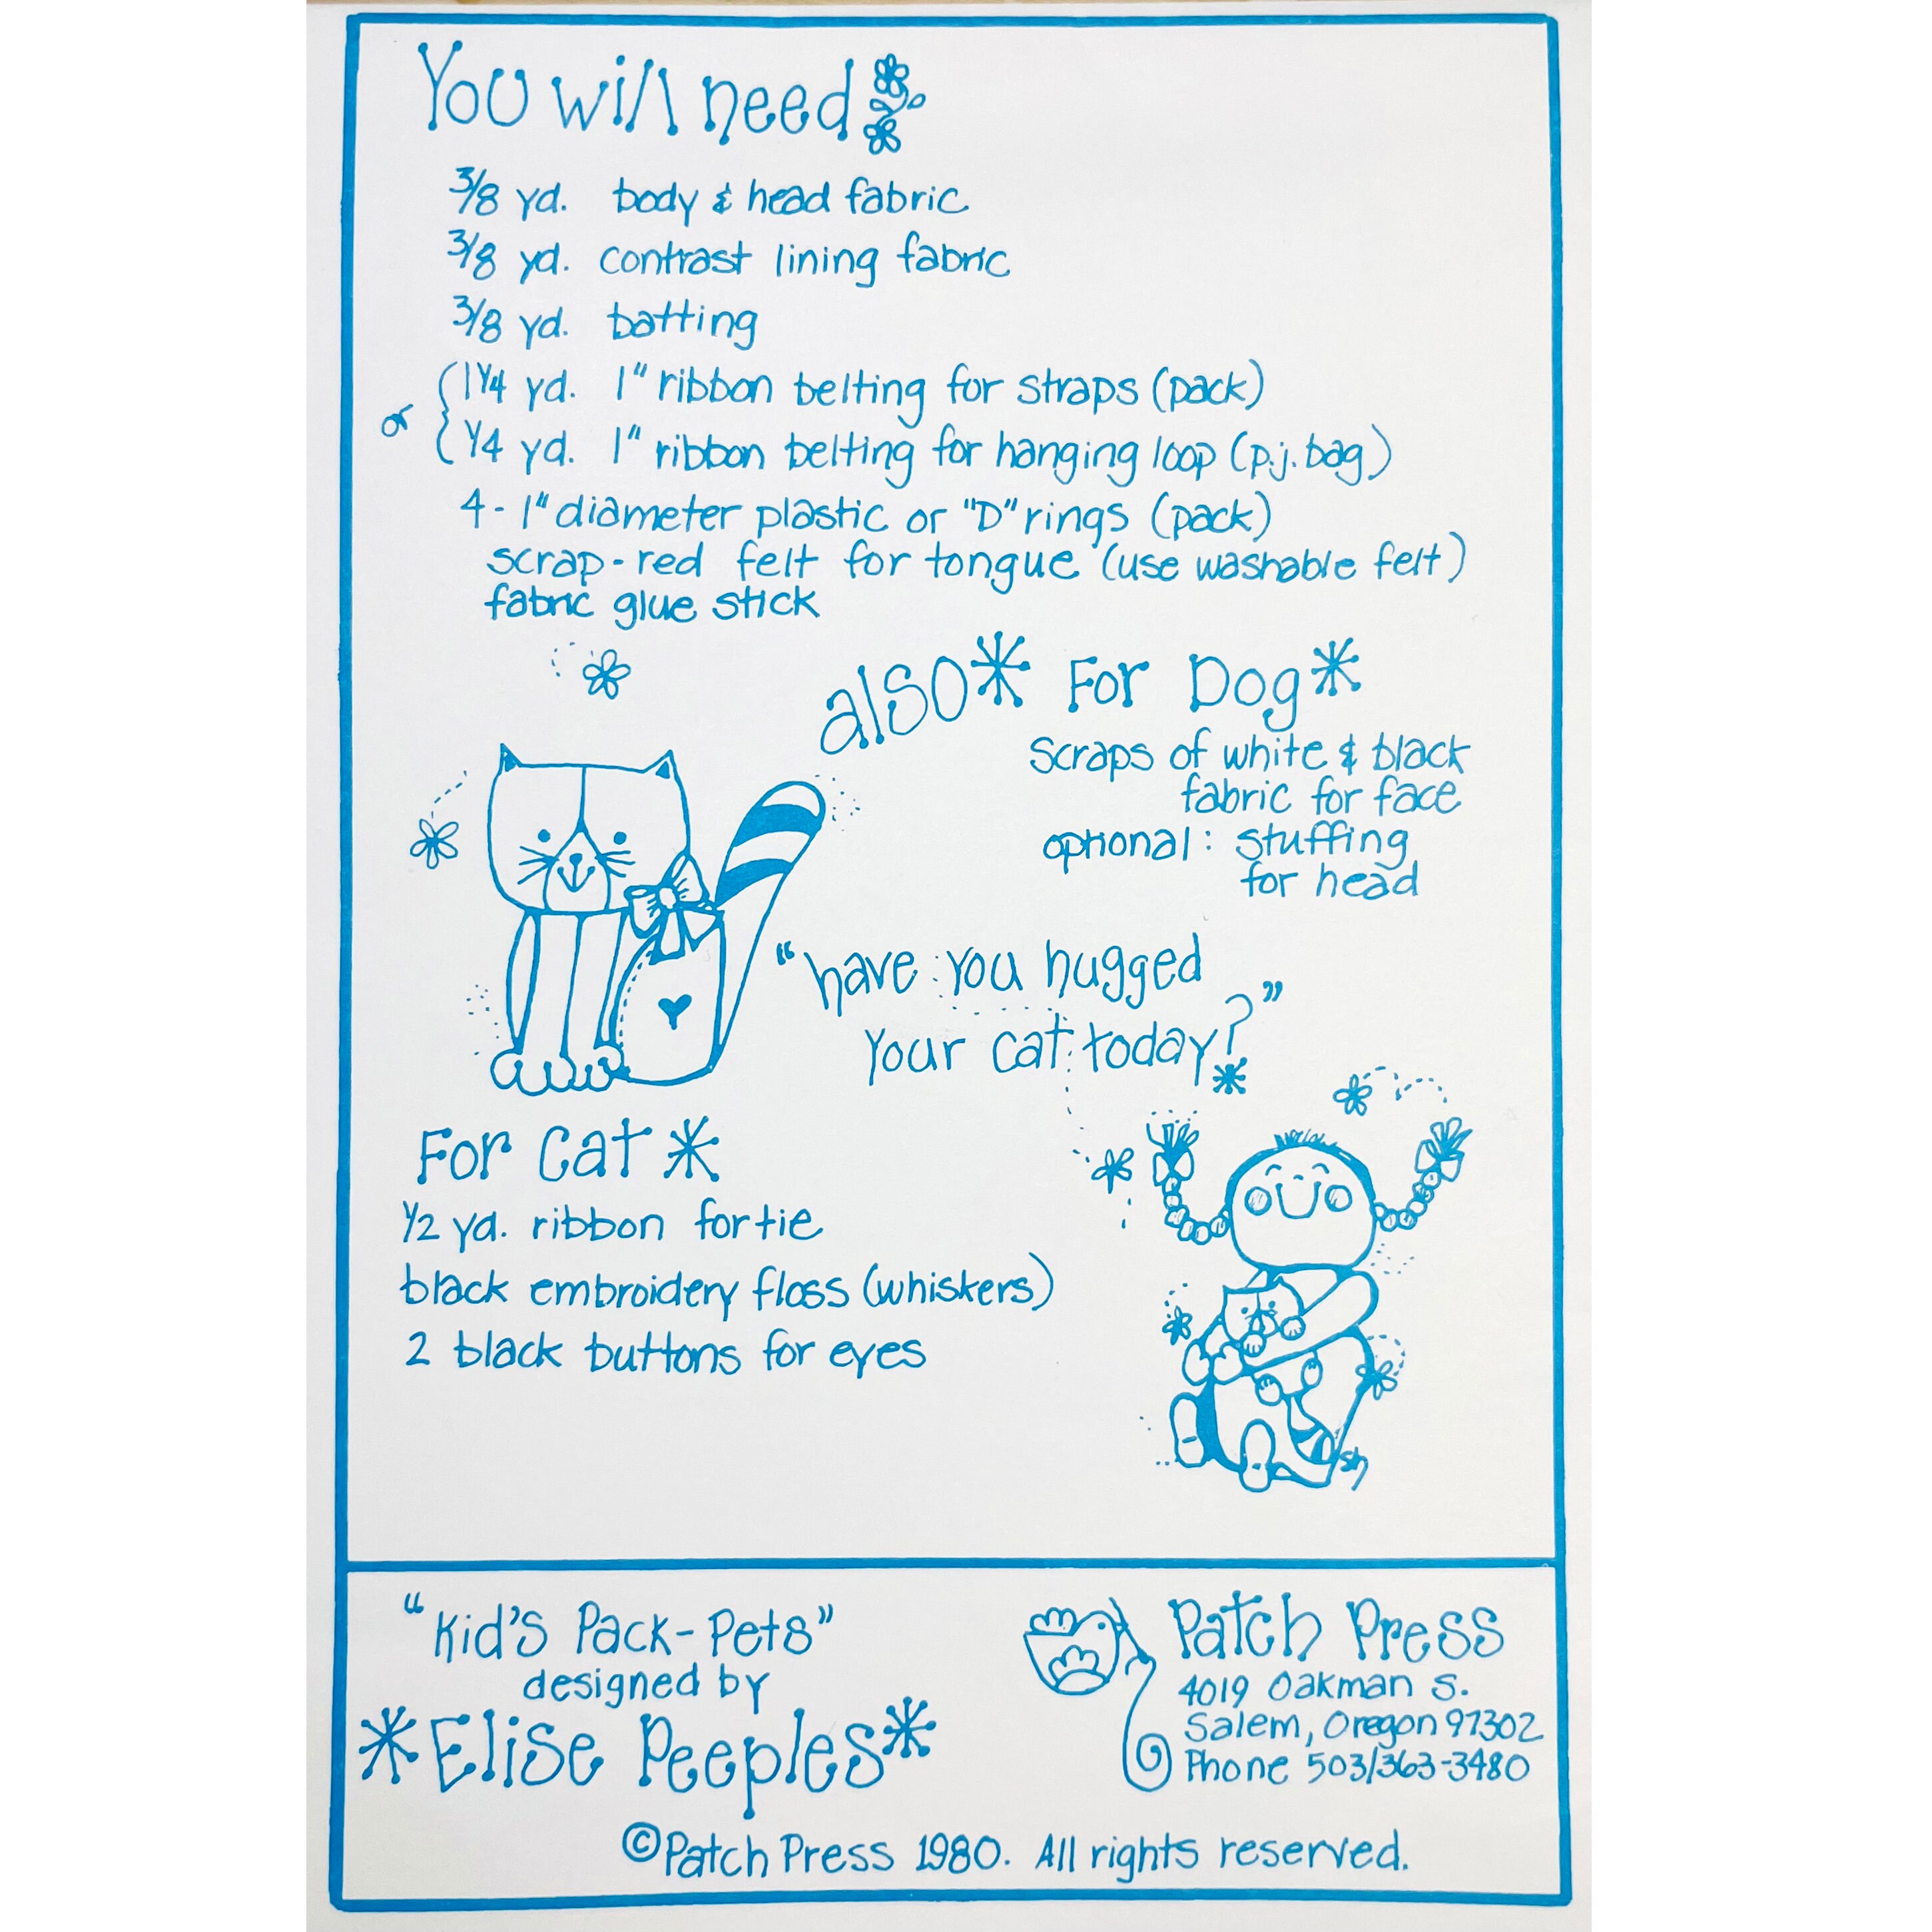 You will need
3/8 yd. body & head fabric
3/8 yd. contrast lining fabric
3/8 yd. batting
or { 1 1/4 yd. 1" ribbon belting for straps (pack)
1/4 yd. 1" ribbon belting for hanging loop (p.j. bag)
4 - 1" diameter plastic or "D" rings (pack)
scrap - red felt for tongue (use washable felt)
fabric glue stick
also* For Dog*
scraps of white & black
fabric for face
optional: stuffing
for head
"have you hugged
your cat today?"
For Cat*
1/2 yd. ribbon for tie
black embroidery floss (whiskers)
2 black buttons for eyes
sh
"Kid's Pack-Pets"
designed by
*Elise Peeples*
Patch Press
4019 Oakman S.
Salem, Oregon 97302
Phone 503/363-3480
©Patch Press 1980. All rights reserved.